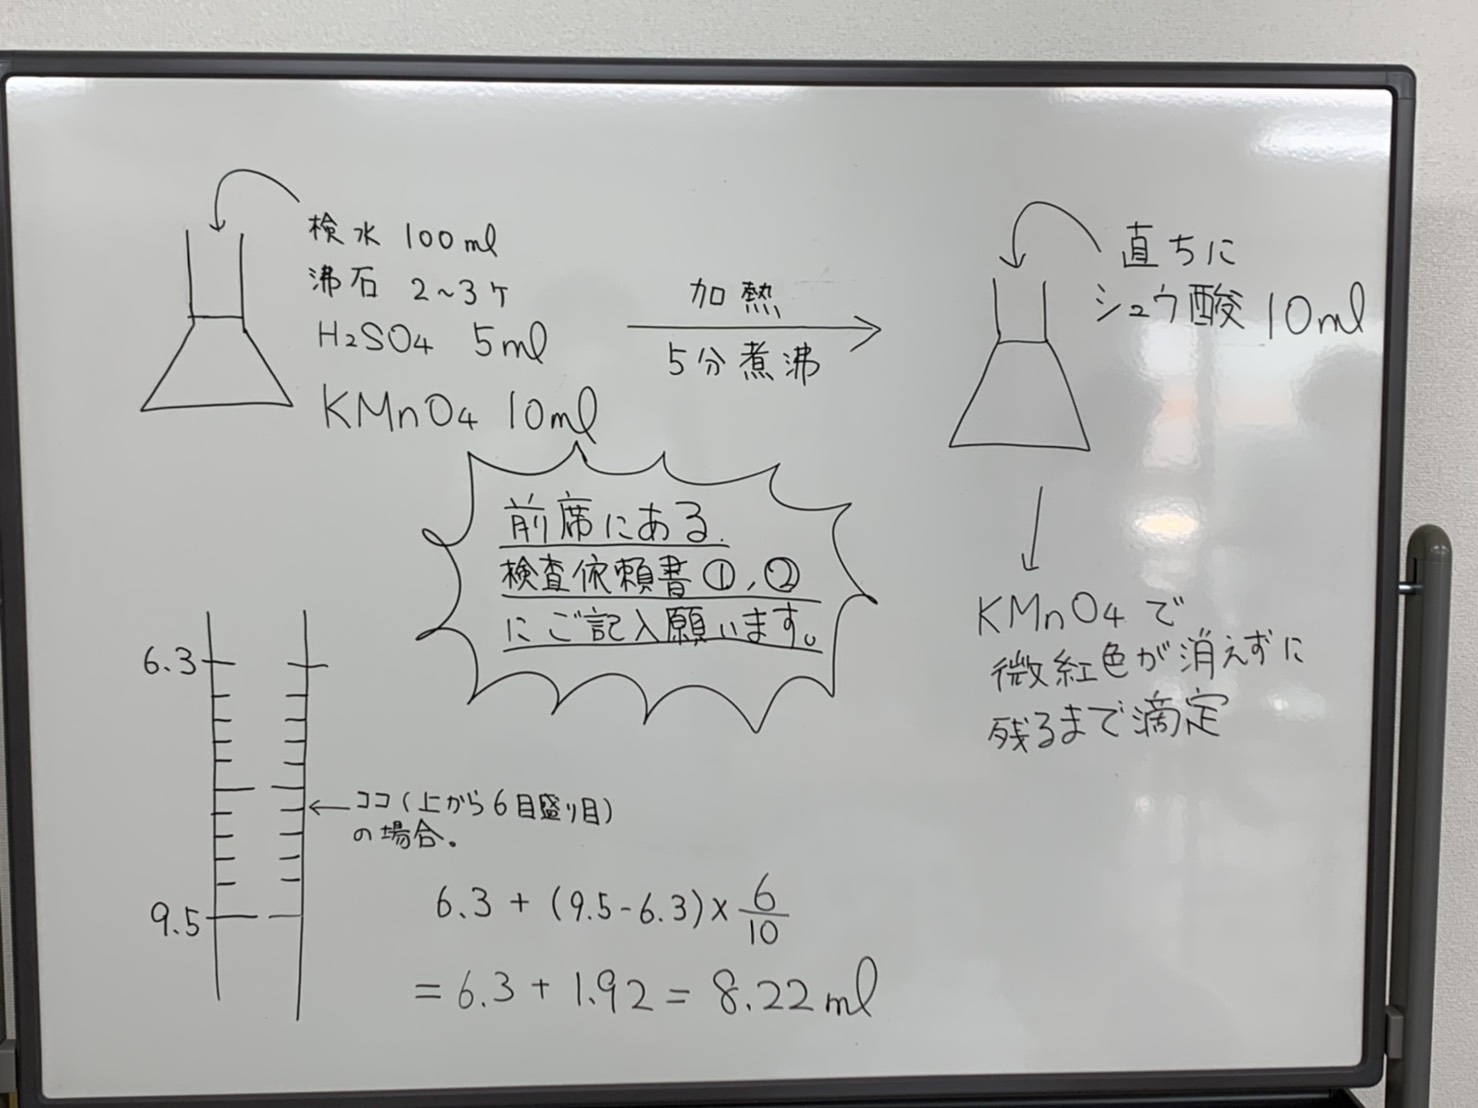 検水 100ml
沸石 2~3ケ
H2SO4 5ml
KMnO4 10ml
加熱
5分煮沸
直ちに
シュウ酸 10ml
KMnO4で
微紅色が消えずに
残るまで滴定
前席にある
検査依頼書①,②
にご記入願います。
6.3
9.5
ココ(上から6目盛り目)
の場合。
6.3+(9.5-6.3)×6/10
=6.3+1.92=8.22ml